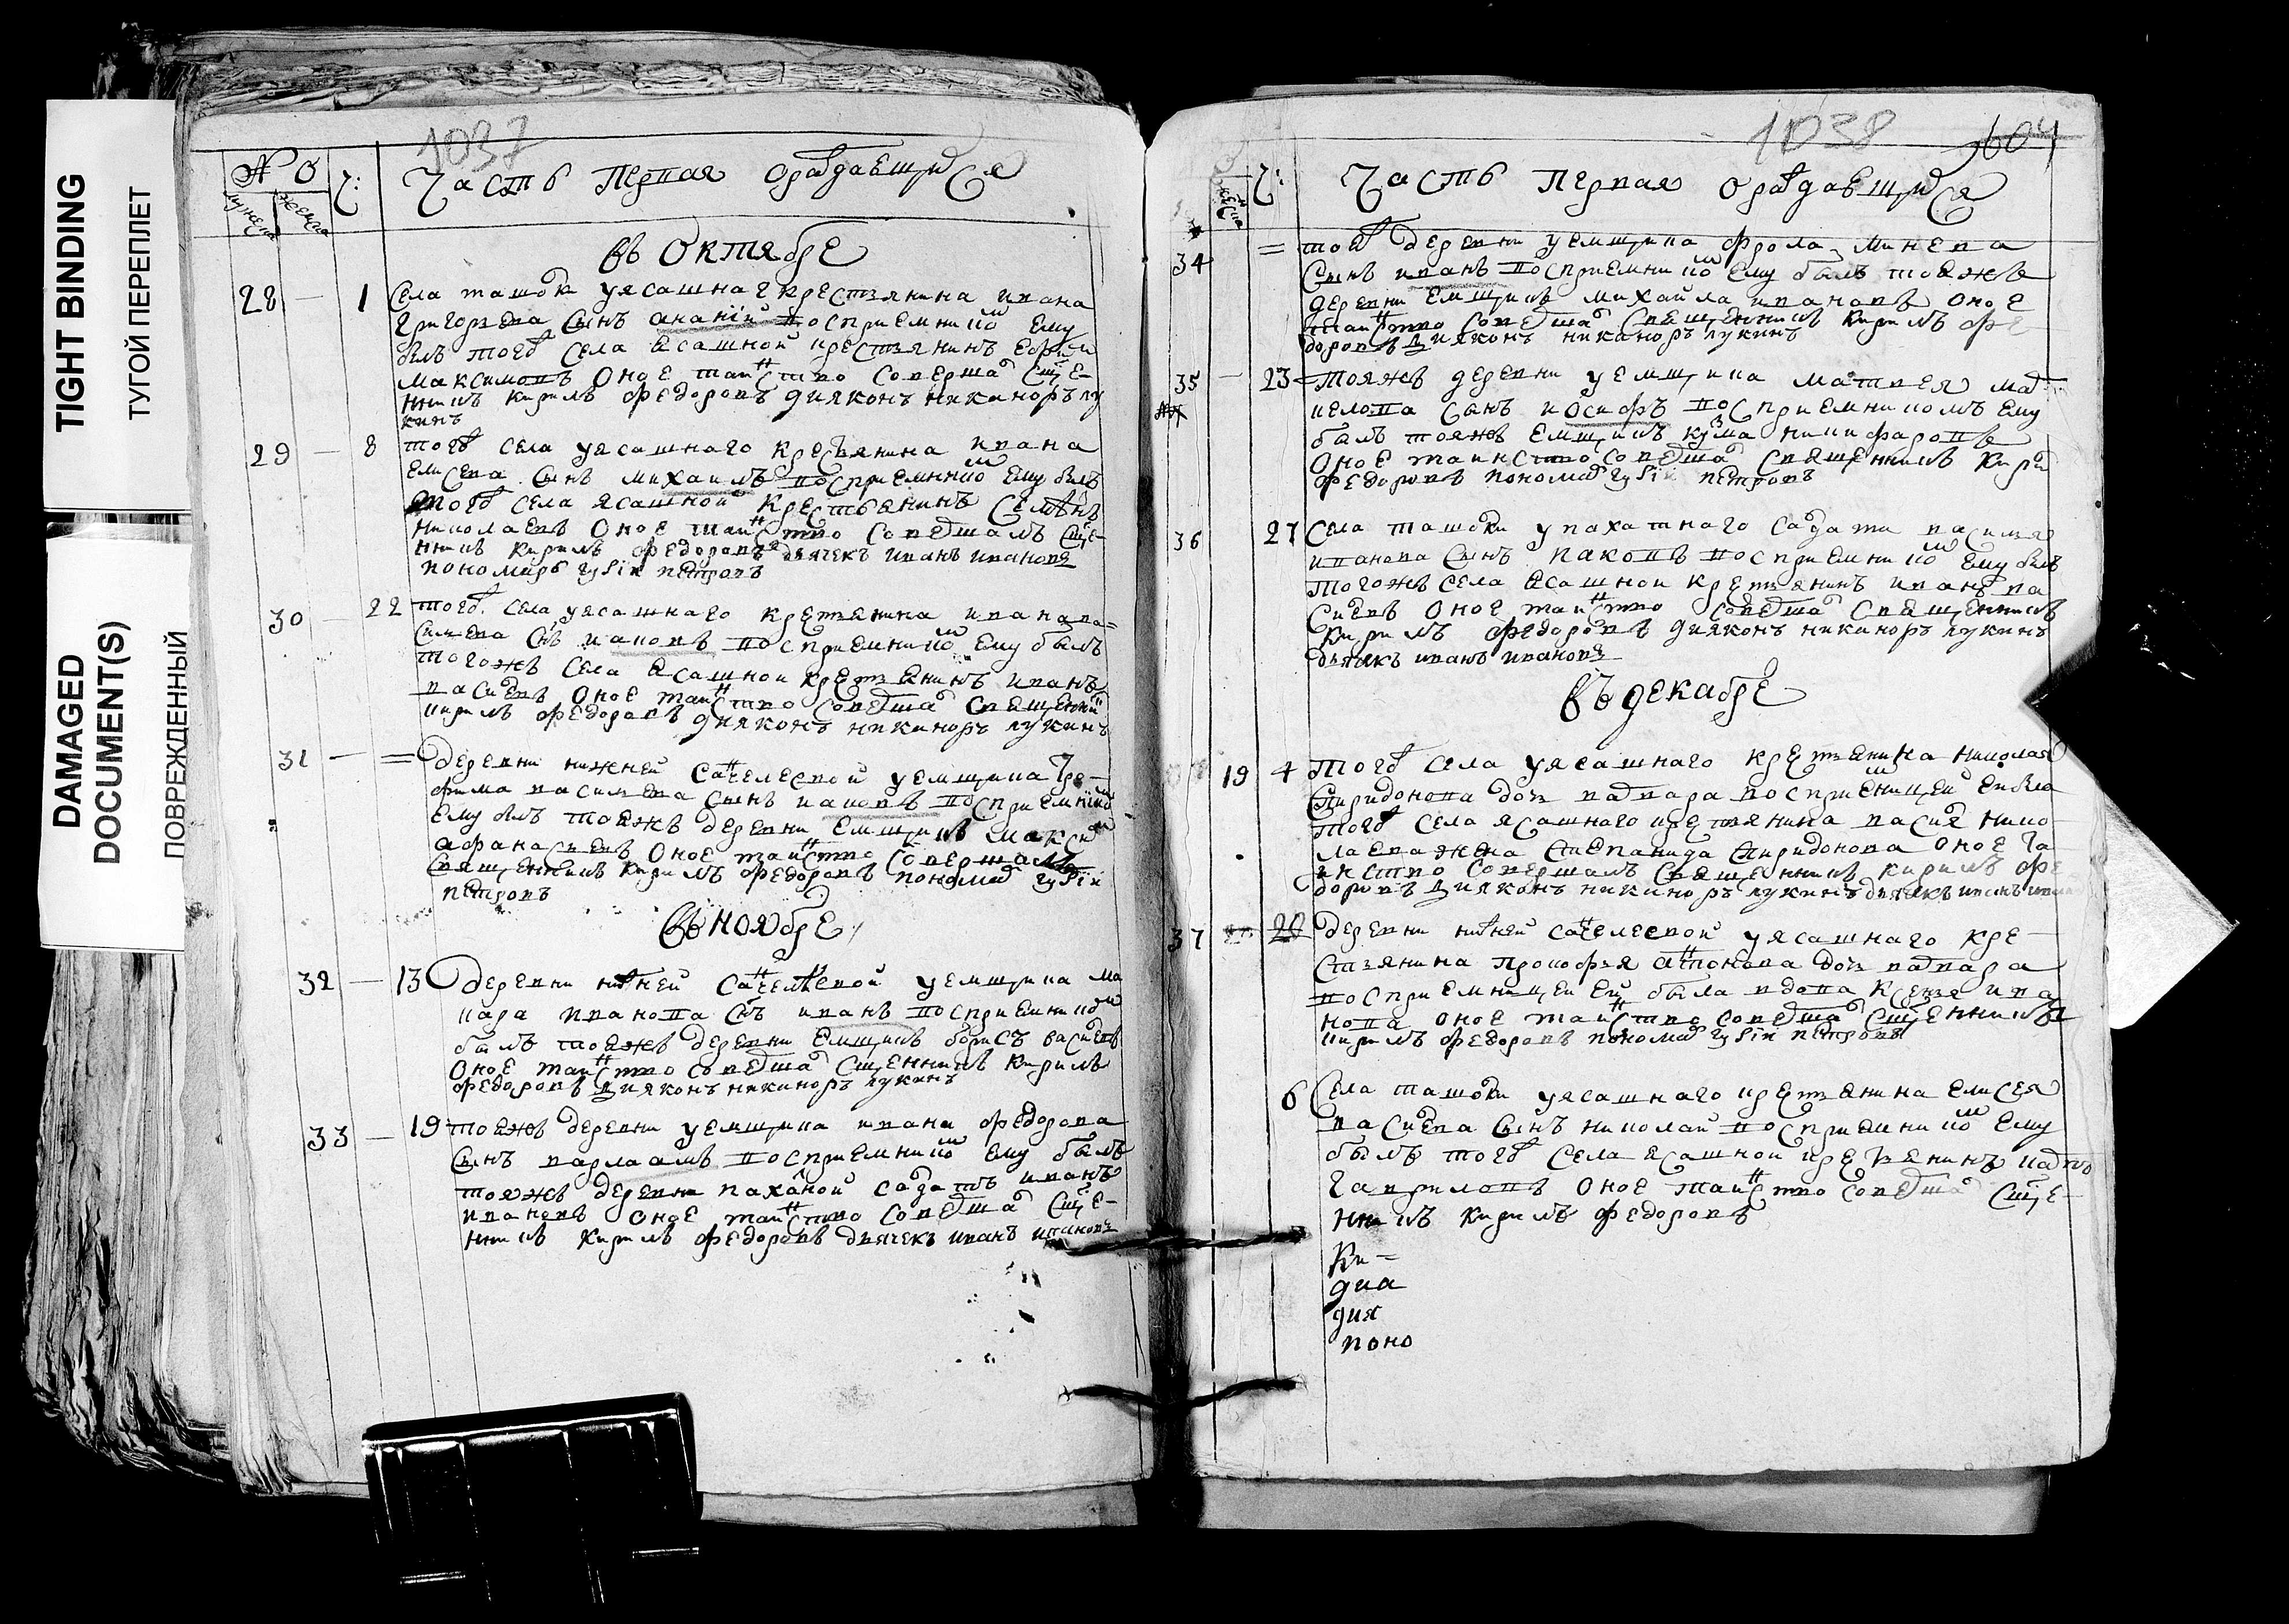 TIGHT BINDING
ТУГОЙ ПЕРЕПЛЕТ
DAMAGED
DOCUMENT(S)
ПОВРЕЖДЕННЫЙ
1037
№
Ч:
Часть Первая ораждающихся
въ Октябре
28 — 1 Села ташок уясашнаг крестьянина ивана
григорьева сынъ ананий восприемником ему
былъ тогож села ясашной крестьянинъ ефим
максимовъ оное таинство совершал Сще-
нникъ кирилъ федоровъ дияконъ никаноръ лу
кинъ
29 — 8 тогож села уясашнаго крестьянина ивана
елисеева сынъ михаилъ восприемником ему былъ
тогож села ясашной крестьянинъ семенъ
николаевъ оное таинство совершалъ Сще-
нникъ кирилъ федоровъ дьячекъ иванъ ивановъ
пономарь петровъ
30 22 тогож села уясашнаго крестьянина ивана ва=
сильева снъ иаковъ восприемником ему былъ
тогожъ села ясашной крестьянинъ иванъ
васильевъ оное таинство совершал священник
кирилъ федоровъ дияконъ никаноръ лукинъ
31 — = деревни нижней уемщика
фима васильева сынъ иаковъ восприемником
ему былъ тояжъ деревни емщикъ максим
афанасьевъ оное таинство совершалъ
священникъ кирилъ федоровъ пономар
петровъ
въ ноябре
32 — 13 деревни нижней уемщика ма
кара иванова снъ иванъ восприемником
былъ тояжъ деревни емщикъ борисъ васильевъ
оное таинство совершал сщенникъ кирилъ
федоровъ дияконъ никаноръ лукинъ
33 — 19 тояжъ деревни уемщика ивана федорова
сынъ варлаамъ восприемником ему былъ
тояжъ деревни пахатной салдатъ иванъ
ивановъ оное таинство совершал Сще-
нникъ кирилъ федоровъ дьячекъ иванъ ивановъ
1038 604
Ч:
Часть Первая ораждающихся
34 = тойж деревни уемщика фрола минеева
сынъ иванъ восприемником ему былъ тояжъ
деревни емщикъ михайла ивановъ оное
таинство совершал священникъ кирилъ фе-
доровъ дияконъ никаноръ лукинъ
35 — 23 тояжъ деревни уемщика матвея мар
келова сынъ иосифъ восприемникомъ ему
былъ тояжъ емщикъ кузма никифоровъ
оное таинство совершал священникъ кирил
федоровъ пономар петровъ
36 27 села ташоки упахатнаго салдата василья
иванова сынъ иаковъ восприемником ему былъ
тогожъ села ясашной крестьянинъ иванъ ва
сильевъ оное таинство совершал священникъ
кирилъ федоровъ дияконъ никаноръ лукинъ
дьячекъ иванъ ивановъ
въ декабре
19 4 тогож села уясашнаго крестьянина николая
спиридонова дочь варвара восприемницей ей была
тогож села ясашнаго крестьянина василья нико-
лаева жена степанида спиридонова оное та
инство совершалъ священникъ кирилъ фе
доровъ дияконъ никаноръ лукинъ дьячекъ иванъ
37 20 деревни нижней уясашнаго кре-
стьянина прокофья антонова дочь варвара
восприемницей ей была вдова ксенья ива
нова оное таинство совершал сщенникъ
кирилъ федоровъ пономар петровъ
6 села ташоки уясашнаго крестьянина елисея
васильева сынъ николай восприемником ему
былъ тогож села ясашной крестьянинъ карпъ
гавриловъ оное таинство совершал Сще-
нникъ кирилъ федоровъ
ки=
диа
дия
поно